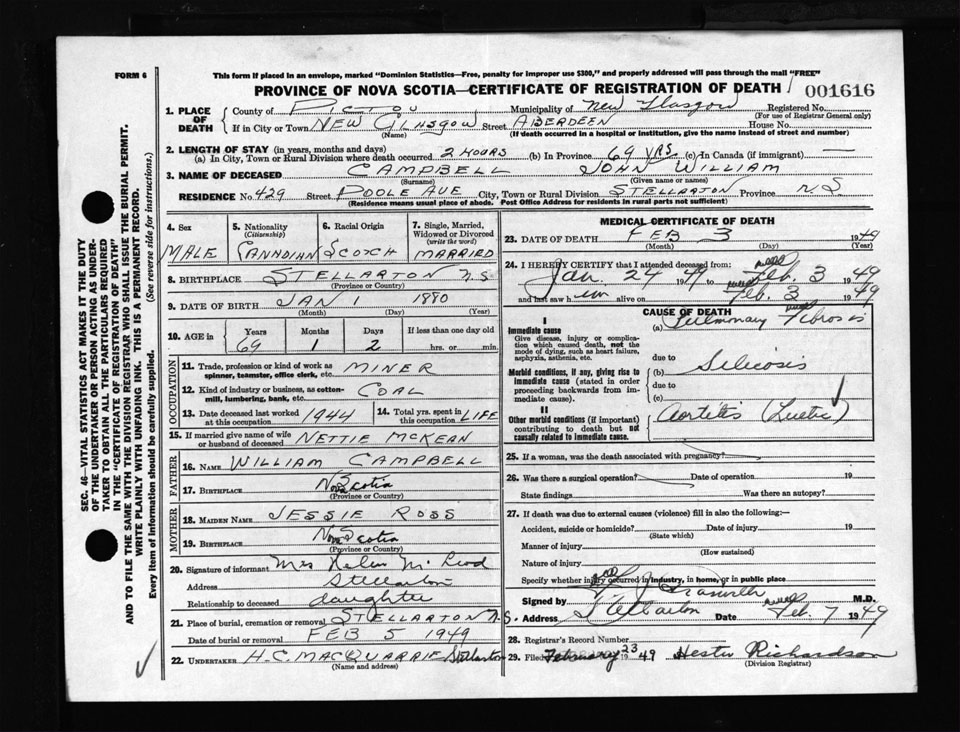 FORM 6
This form if placed in an envelope, marked "Dominion Statistics—Free, penalty for improper use $300," and properly addressed will pass through the mail "FREE"
PROVINCE OF NOVA SCOTIA—CERTIFICATE OF REGISTRATION OF DEATH
001616
1. PLACE OF DEATH
County of PICTOU Municipality of New Glasgow Registered No.
(For use of Registrar General only)
If in City or Town NEW GLASGOW Street ABERDEEN House No.
(Name) (If death occurred in a hospital or institution, give the name instead of street and number)
2. LENGTH OF STAY (in years, months and days)
(a) In City, Town or Rural Division where death occurred 2 HOURS (b) In Province 69 YRS (c) In Canada (if immigrant) —
3. NAME OF DECEASED CAMPBELL JOHN WILLIAM
(Surname) (Given name or names)
RESIDENCE No 429 Street POOLE AVE City, Town or Rural Division STELLARTON Province N.S
(Residence means usual place of abode. Post Office Address for residents in rural parts not sufficient)
4. Sex
MALE
5. Nationality (Citizenship)
CANADIAN
6. Racial Origin
SCOTCH
7. Single, Married, Widowed or Divorced (write the word)
MARRIED
8. BIRTHPLACE STELLARTON N.S
(Province or Country)
9. DATE OF BIRTH JAN 1 1880
(Month) (Day) (Year)
10. AGE in Years Months Days If less than one day old
69 1 2 hrs. or min.
OCCUPATION
11. Trade, profession or kind of work as spinner, teamster, office clerk, etc. MINER
12. Kind of industry or business, as cotton-mill, lumbering, bank, etc. COAL
13. Date deceased last worked at this occupation 1944
14. Total yrs. spent in this occupation LIFE
15. If married give name of wife or husband of deceased NETTIE McKEAN
FATHER
16. NAME WILLIAM CAMPBELL
17. BIRTHPLACE Nova Scotia
(Province or Country)
MOTHER
18. MAIDEN NAME JESSIE ROSS
19. BIRTHPLACE Nova Scotia
(Province or Country)
20. Signature of informant Mrs Helen McLeod
Address Stellarton
Relationship to deceased daughter
21. Place of burial, cremation or removal STELLARTON N.S.
Date of burial or removal FEB 5 1949
22. UNDERTAKER H.C. MACQUARRIE Stellarton
(Name and address)
MEDICAL CERTIFICATE OF DEATH
23. DATE OF DEATH FEB 3 1949
(Month) (Day) (Year)
24. I HEREBY CERTIFY that I attended deceased from:
Jan. 24 1949 to Feb. 3 1949
and last saw him alive on Feb. 3 1949
CAUSE OF DEATH
I
Immediate cause
Give disease, injury or complication which caused death, not the mode of dying, such as heart failure, asphyxia, asthenia, etc.
(a) Pulmonary Fibrosis
due to
Morbid conditions, if any, giving rise to immediate cause (stated in order proceeding backwards from immediate cause).
(b) Silicosis
due to
(c)
II
Other morbid conditions (if important) contributing to death but not causally related to immediate cause.
Aortitis (Luetic)
25. If a woman, was the death associated with pregnancy?
26. Was there a surgical operation? Date of operation 19
State findings Was there an autopsy?
27. If death was due to external causes (violence) fill in also the following:—
Accident, suicide or homicide? Date of injury 19
(State which)
Manner of injury
(How sustained)
Nature of injury
Specify whether injury occurred in industry, in home, or in public place
Signed by M.D.
Address Stellarton Date Feb. 7 1949
28. Registrar's Record Number
29. Filed February 23 1949 Hester Richardson
(Division Registrar)
SEC. 46—VITAL STATISTICS ACT MAKES IT THE DUTY
OF THE UNDERTAKER OR PERSON ACTING AS UNDER-
TAKER TO OBTAIN ALL THE PARTICULARS REQUIRED
IN THE "CERTIFICATE OF REGISTRATION OF DEATH"
AND TO FILE THE SAME WITH THE DIVISION REGISTRAR WHO SHALL ISSUE THE BURIAL PERMIT.
WRITE PLAINLY WITH UNFADING INK. THIS IS A PERMANENT RECORD.
Every item of information should be carefully supplied. (See reverse side for instructions.)